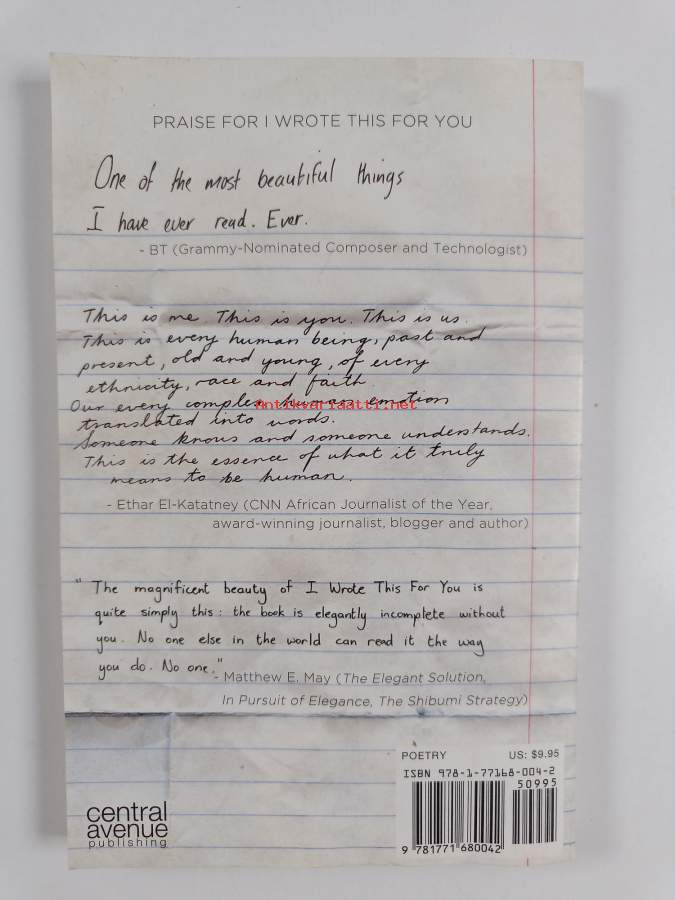 PRAISE FOR I WROTE THIS FOR YOU
One of the most beautiful things
I have ever read. Ever.
- BT (Grammy-Nominated Composer and Technologist)
This is me. This is you. This is us.
This is every human being, past and
present, old and young, of every
ethnicity, race and faith.
Our every complex human emotion
antikvariaatti.net
translated into words.
Someone knows and someone understands.
This is the essence of what it truly
means to be human.
- Ethar El-Katatney (CNN African Journalist of the Year,
award-winning journalist, blogger and author)
"The magnificent beauty of I Wrote This For You is
quite simply this: the book is elegantly incomplete without
you. No one else in the world can read it the way
you do. No one."
- Matthew E. May (The Elegant Solution,
In Pursuit of Elegance, The Shibumi Strategy)
POETRY US: $9.95
ISBN 978-1-77168-004-2
50995
9 781771 680042
central
avenue
publishing